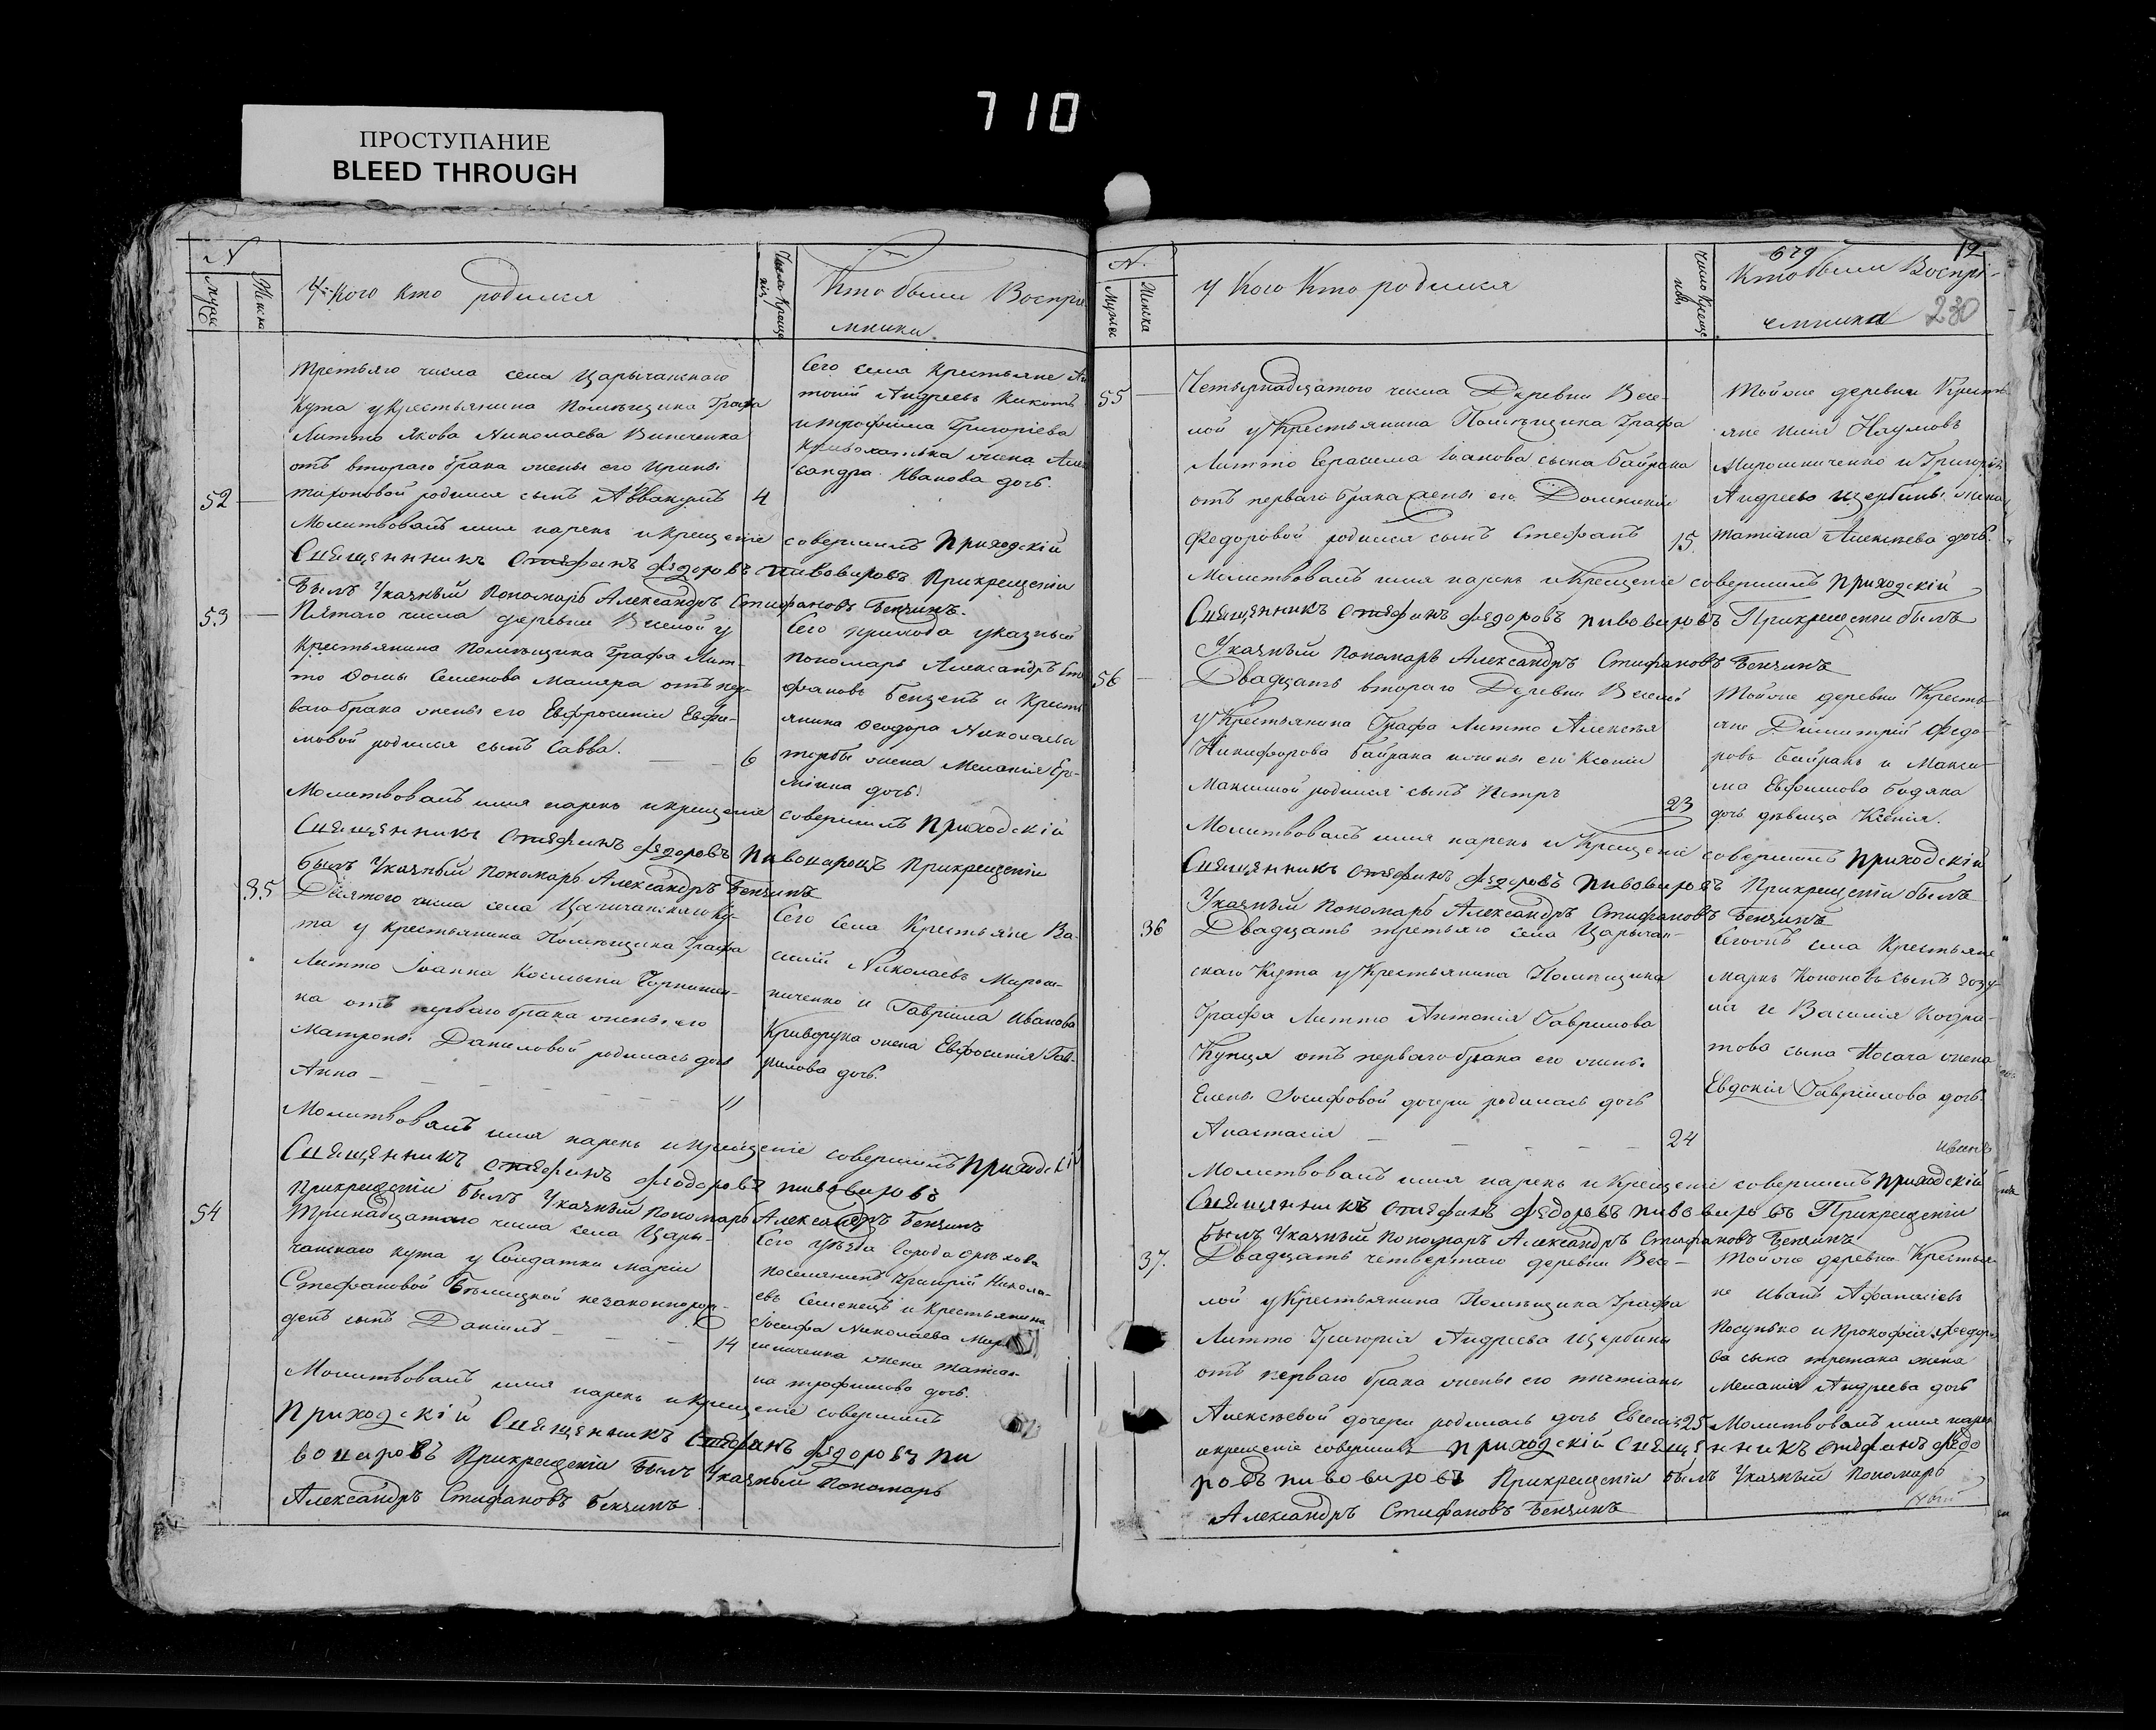 710
ПРОСТУПАНИЕ
BLEED THROUGH
N
Муж
Женска
У Кого кто родился
Число Креще
нія
Кто были Воспрі
мники.
третьяго числа села Царычанскаго
Кута у крестьянина Помѣщика Графа
Литто Якова Николаева
отъ втораго брака жены его Ирины
52
родился сынъ Аввакумъ
4
Сего села Крестьяне Ан
тоній Андреевъ
и трофима Григоріева
жена Алек
сандра Иванова дочь.
Молитвовалъ имя нарекъ и крещеніе совершилъ Приходскій
Священникъ Стефанъ Федоровъ Пивоваровъ Прикрещеніи
былъ Указный Пономарь Александръ Стифановъ Бенчинъ.
53
Пятаго числа деревни Веселой у
Крестьянина Помѣщика Графа Лит-
то Ѳомы Семенова Маляра отъ пер-
ваго брака жены его Евфросиніи Евфи-
мовой родился сынъ Савва.
6
Сего прихода указный
пономарь Александръ Сти
фановъ Бенценъ и Кресть
янина Ѳеодора Николаева
жена Меланія Ере-
міина дочь.
Молитвовалъ имя нарекъ и крещеніе совершилъ Приходскій
Священникъ Стефанъ Федоровъ Пивоваровъ Прикрещеніи
былъ Указный Пономарь Александръ Бенчинъ
35
Десятого числа села Царичанскаго Ку-
та у крестьянина Помѣщика Графа
Литто Іоанна Космина
ка отъ перваго брака жены его
Матроны Даниловой родилась дочь
Анна
11
Сего села Крестьяне Ва-
силій Николаевъ Мирош-
ниченко и Гавріила Иванова
Криворука жена Евфросинія Гав-
рилова дочь.
Молитвовалъ имя нарекъ и крещеніе совершилъ Приходскій
Священникъ Стефанъ Федоровъ Пивоваровъ
Прикрещеніи былъ Указный Пономарь Александръ Бенчинъ
54
Тринадцатого числа села Цары-
чанскаго кута у Солдатки Маріи
Стефановой Бѣлицкой незаконнорож-
денъ сынъ Даніилъ
14
Сего уѣзда города Орѣхова
поселянинъ Григорій Никола-
евъ Семенецъ и Крестьянина
Іосифа Николаева
жена татіа-
на трофимова дочь.
Молитвовалъ имя нарекъ и крещеніе совершилъ
Приходскій Священникъ Стефанъ Федоровъ Пи
воваровъ Прикрещеніи былъ Указный Пономарь
Александръ Стифановъ Бенчинъ.
N.
Мужес
Женска
у Кого Кто родился
Число Креще
нія
679
12
Кто были Воспрі-
емники
230
55
Четырнадцатого числа Деревни Весе-
лой у Крестьянина Помѣщика Графа
Литто Герасима Іоанова сына Байрака
отъ перваго брака жены его Домникіи
Федоровой родился сынъ Стефанъ
15.
Тойже деревни Кресть
яне Наумовъ
Мирошниченко и Григорія
Андреева Щербины жена
татіана Алексѣева дочь.
Молитвовалъ имя нарекъ и Крещеніе совершилъ Приходскій
Священникъ Стефанъ Федоровъ Пивоваровъ Прикрещеніи былъ
Указный Пономарь Александръ Стифановъ Бенчинъ
56
Двадцать втораго Деревни Веселой
у Крестьянина Графа Литто Алексѣя
Никифорова Байрака жены его Ксеніи
Максимой родился сынъ Петръ
23
Тойже деревни Кресть-
яне Димитрій Федо-
ровъ Байракъ и Макси-
ма Евфимова Бодяка
дочь дѣвица Ксенія.
Молитвовалъ имя нарекъ и Крещеніе совершилъ Приходскій
Священникъ Стефанъ Федоровъ Пивоваровъ Прикрещеніи былъ
Указный Пономарь Александръ Стифановъ Бенчинъ
36
Двадцать третьяго села Царычан-
скаго Кута у Крестьянина Помѣщика
Графа Литто Антонія Гаврилова
Купця отъ перваго брака его жены
Елены Іосифовой дочери родилась дочь
Анастасія
24
Сегожъ села Крестьяне
Марка Кононовъ сынъ
и Василія Кодра-
това сына Носача жена
Евдокія Гавріилова дочь.
Молитвовалъ имя нарекъ и Крещеніе совершилъ Приходскій
Священникъ Стефанъ Федоровъ Пивоваровъ Прикрещеніи
былъ Указный Пономарь Александръ Стифановъ Бенчинъ
37.
Двадцать четвертаго деревни Весе-
лой у Крестьянина Помѣщика Графа
Литто Григорія Андреева Щербины
отъ перваго брака жены его татіаны
Алексѣевой дочери родилась дочь
25
Тойже деревни Крестья-
не Иванъ Афанасіевъ
Носунько и Прокофія Федоро
ва сына третяка жена
Меланія Андреева дочь
Молитвовалъ имя нарек
и крещеніе совершилъ Приходскій Священникъ Стефанъ Федо
ровъ Пивоваровъ Прикрещеніи былъ Указный Пономарь
Александръ Стифановъ Бенчинъ